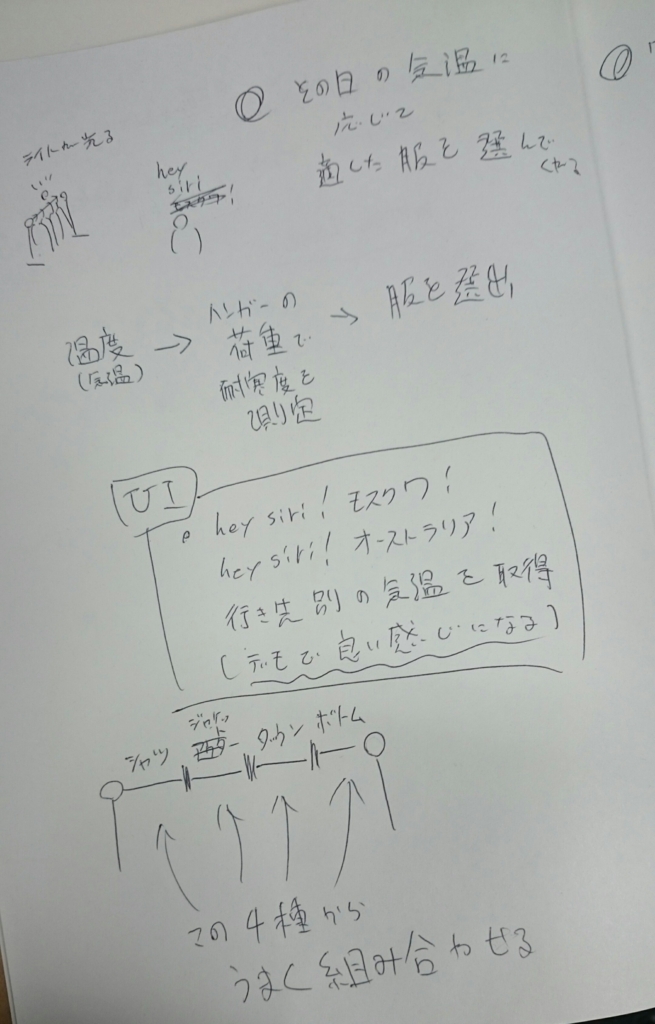 ◎ その日の気温に
応じて
適した服を選んで
くれる
ライトが光る
hey
siri
!
温度
(気温)
→
ハンガーの
荷重で
耐寒度を
測定
→
服を選出
UI
hey siri! モスクワ!
hey siri! オーストラリア!
行き先別の気温を取得
(デモで良い感じになる)
シャツ
ジャケット
ダウン
ボトム
この4種から
うまく組み合わせる